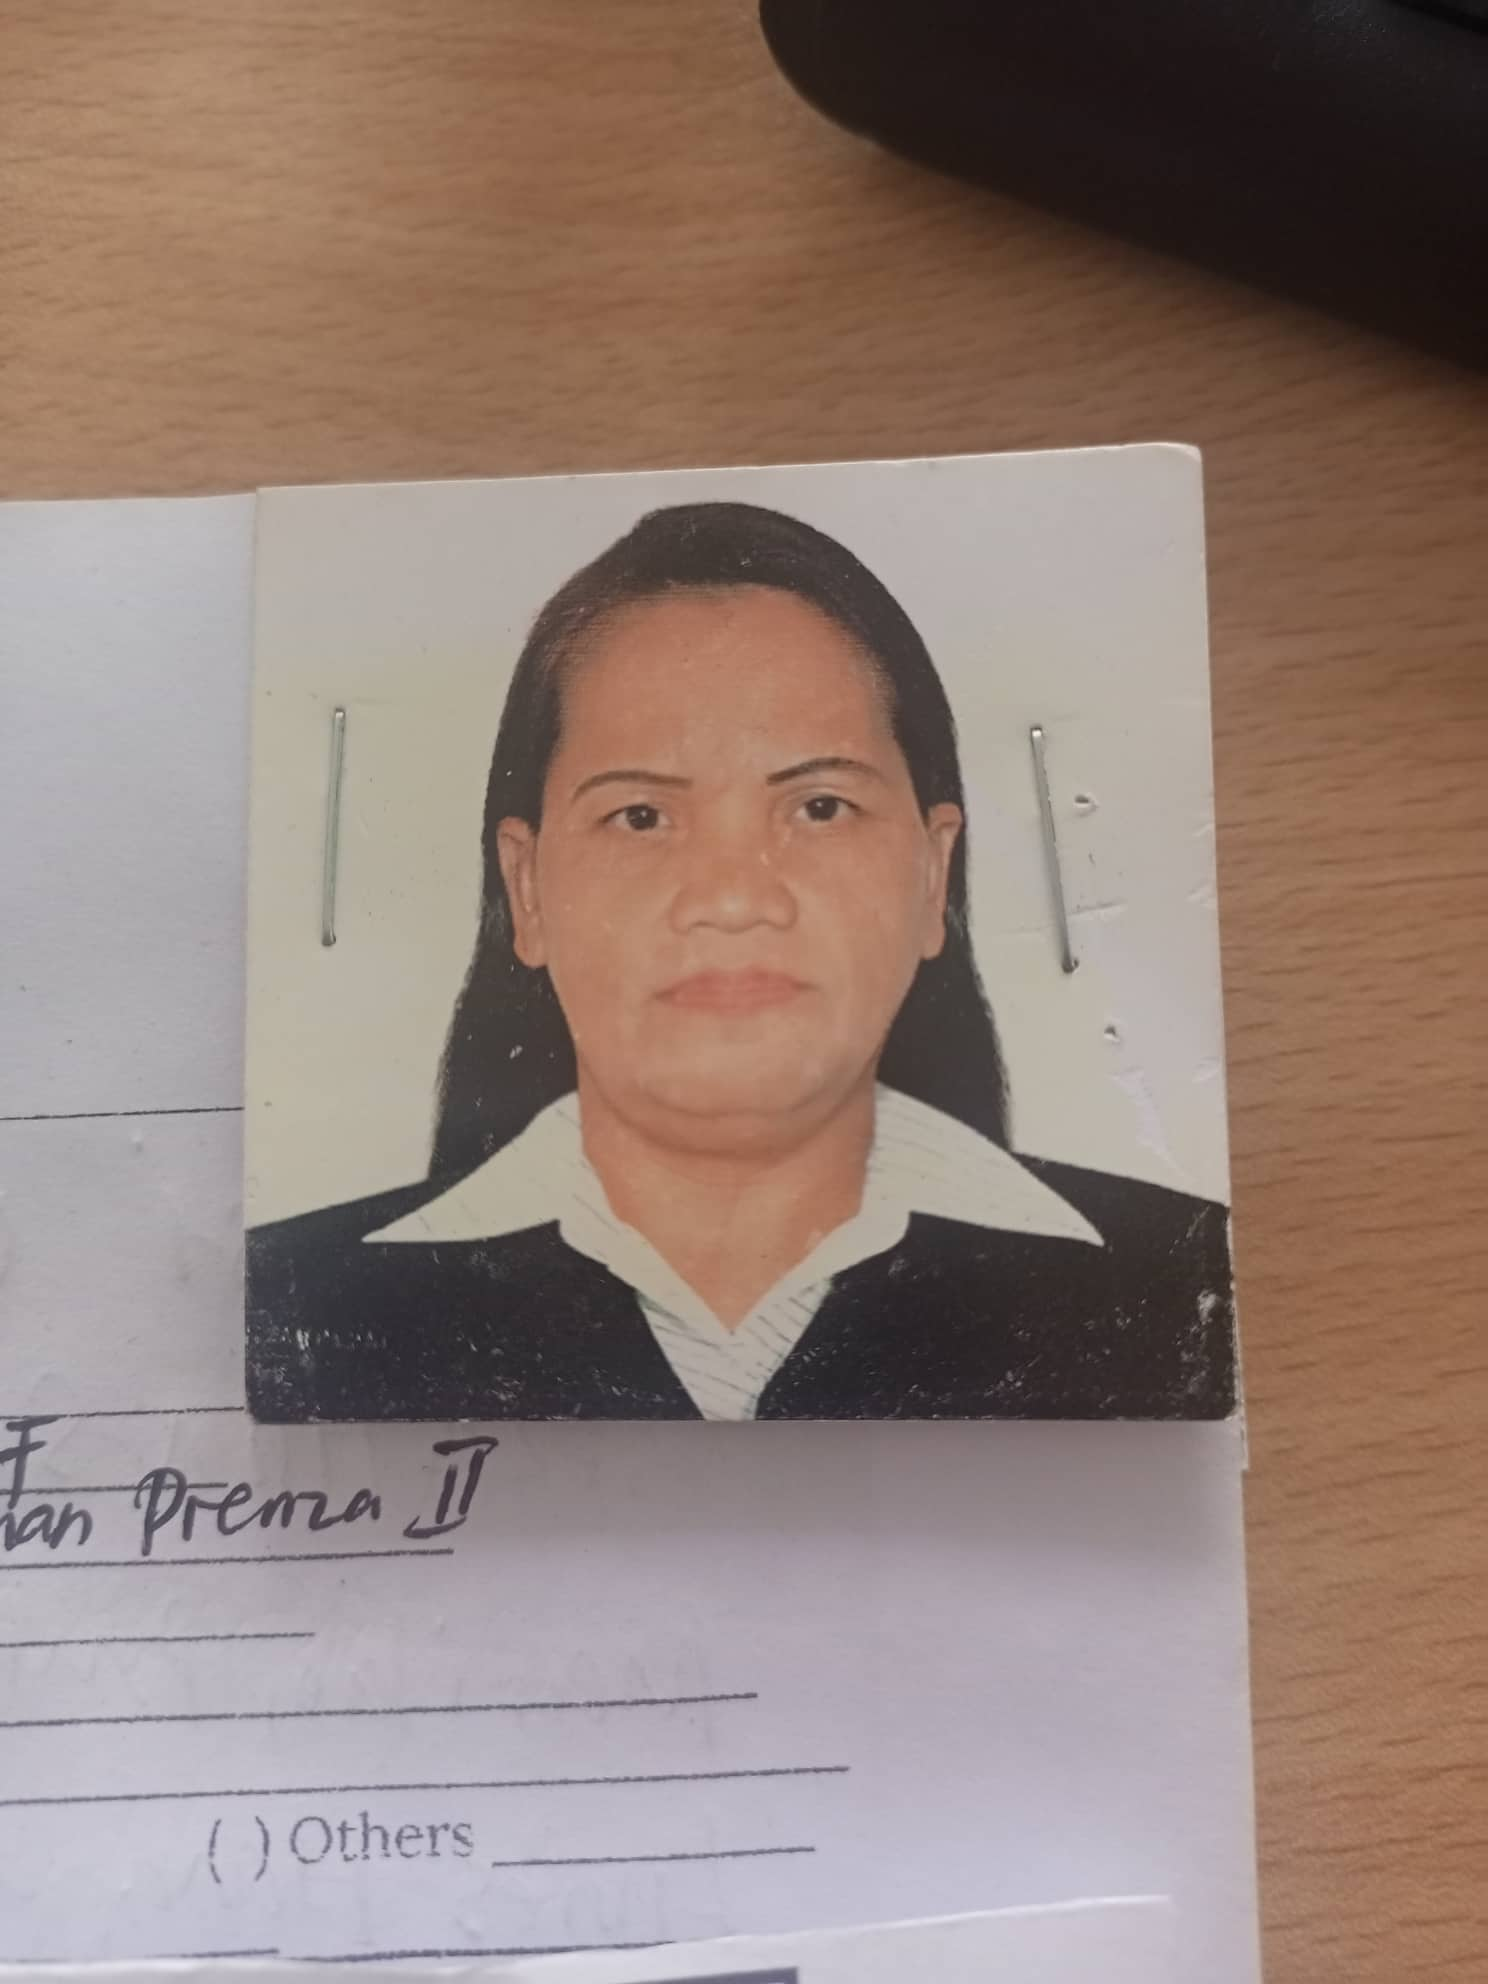 F
nan Prenza II
( ) Others